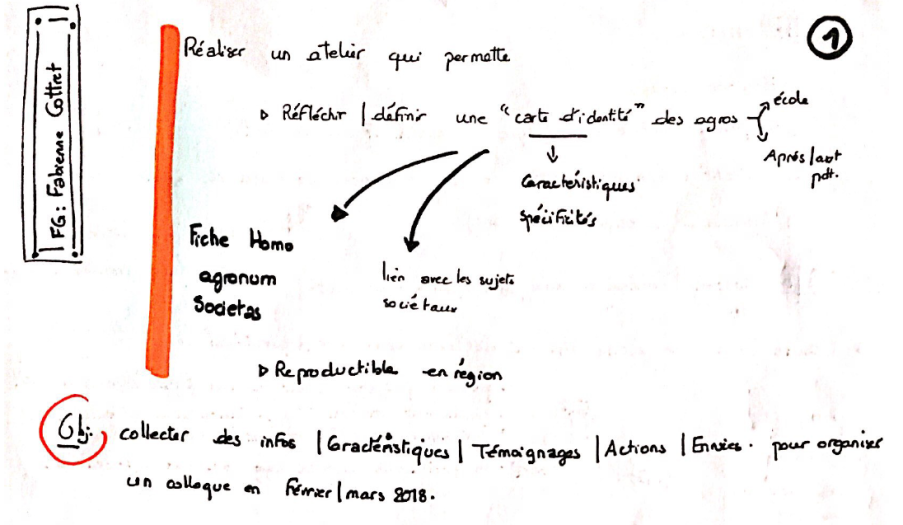 FG: Fabienne Cottret
1
Réaliser un atelier qui permette
▷ Réfléchir | définir une "carte d'identité" des agros
école
Après | avt
pdt.
Caractéristiques
spécificités
Fiche Homo
agronum
Societas
lien avec les sujets
sociétaux
▷ Reproductible en région
Obj. collecter des infos | Caractéristiques | Témoignages | Actions | Envies. pour organiser
un colloque en Février | mars 2018.